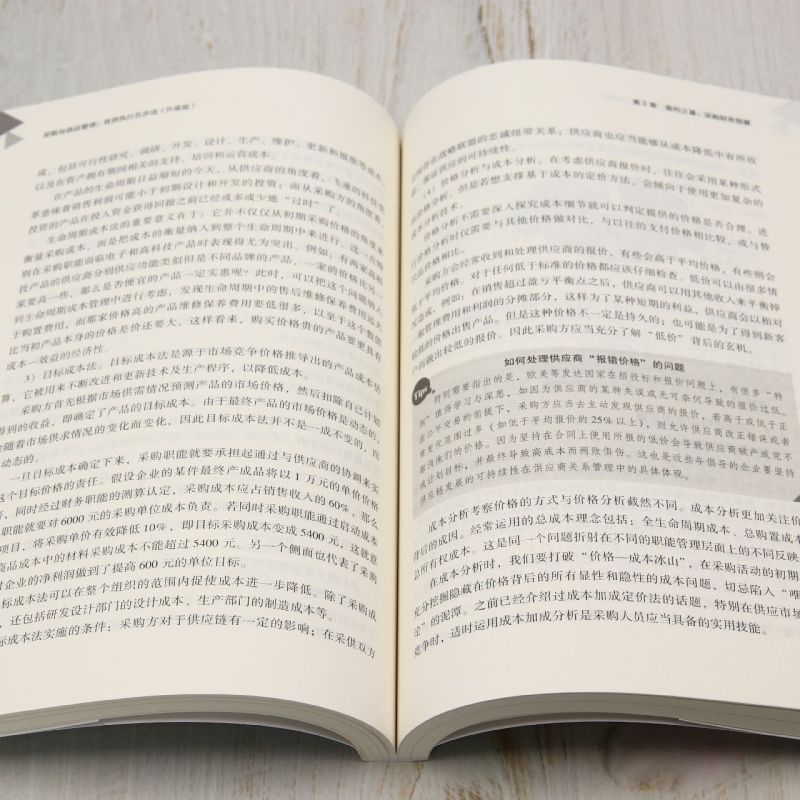 采购与供应管理：有效执行五步法（升级版）
成，包括可行性研究、调研、开发、设计、生产、维护、更新和报废等成本，
以及在资产拥有期间相关的支持、培训和运营成本。
在产品的生命周期日益缩短的今天，从供应商的角度看，飞速的科技变
革意味着销售利润可能小于初期设计和开发的投资；而从采购方的角度看，
投资的产品在投入资金获得回报之前已经或多或少地“过时”了。
生命周期成本法的重要意义在于：它并不仅仅从初期采购价格的角度来
衡量采购成本，而是把成本的衡量纳入到整个生命周期中来进行。这一点特
别在采购职能面临电子和高科技产品时表现得尤为突出。例如：有两家高科
技产品的供应商分别供应功能类似但是不同品牌的产品，一家的价格比另一
家要高一些，那么是否便宜的产品一定实惠呢？此时，可以把这个问题纳入
到生命周期成本管理中进行考虑，发现生命周期中的售后维修保养费用远大
于购置费用，而那家价格高的产品维修保养费用要低很多，以至于这个数值
比当初产品本身的价格差价还要大，这样看来，购买价格贵的产品要更具有
成本—效益的经济性。
3）目标成本法。目标成本法是源于市场竞争价格推导出的产品成本估
算，它被用来不断改进和更新技术及生产程序，以降低成本。
采购方首先根据市场供需情况预测产品的市场价格，然后扣除自己计划
得到的收益，即确定了产品的目标成本。由于最终产品的市场价格是动态的，
会随着市场供求情况的变化而变化，因此目标成本法并不是一成不变的，而
动态的。
一旦目标成本确定下来，采购职能就要承担起通过与供应商的协调来实
这个目标价格的责任。假设企业的某件最终产成品将以1万元的单价价格
，同时经过财务职能的测算认定，采购成本应占销售收入的60%，那么
职能就要对6000元的采购单位成本负责。若同时采购职能通过启动成本
项目，将采购单价有效降低10%，即目标采购成本变成5400元，这就意
商品成本中的材料采购成本不能超过5400元。另一个侧面也代表了采购
对企业的净利润做到了提高600元的单位目标。
标成本法可以在整个组织的范围内促使成本进一步降低。除了采购成
，还包括研发设计部门的设计成本、生产部门的制造成本等。
标成本法实施的条件：采购方对于供应链有一定的影响；在采供双方
第3章 采购财务预算
战略联盟的忠诚纽带关系；供应商也应当能够从成本降低中有所收
保证供应的可持续性。
（4）价格分析与成本分析。在考虑供应商报价时，往往会采用某种形式
价格分析，但是若想支撑基于成本的定价方法，会倾向于使用更加复杂的
成本分析技术。
价格分析不需要深入探究成本细节就可以判定提供的价格是否合理，进
行价格分析时仅需要与其他价格做对比，与以往的支付价格相比较，或与替
代品价格相比。
采购方会经常收到和处理供应商的报价，有些会高于平均价格，有些则会
低于平均价格。对于任何低于标准的价格都应该仔细检查。低价可以由很多情
况造成，例如：在销售超过盈亏平衡点之后，供应商可以用其他收入来平衡掉
一般管理费用和利润的分摊部分，这样为了某种短期的利益，供应商会以相对
较低的价格出售产品。但是这种价格不一定是持久的；也可能是为了得到新客
户而做出较低的报价。因此采购方应当充分了解“低价”背后的玄机。
如何处理供应商“报错价格”的问题
Tips
特别需要指出的是，欧美等发达国家在招投标和报价问题上，有很多“特
例”值得学习与深思，如因为供应商的某种失误或无可奈何导致的报价过低。
在公平交易的前提下，采购方应当去主动发现供应商的报价，若高于或低于正
常变化范围过多（如低于平均报价的25%以上），则允许供应商改正错误或者
撤洪他们的价格。因为坚持在合同上使用所报的低价会导致供应商破产或完不
成计划目标，并最终导致高成本而两败俱伤。这也是近些年倡导的企业要坚持
供应链发展的可持续性在供应商关系管理中的具体体现。
成本分析考察价格的方式与价格分析截然不同。成本分析更加关注价
背后的成因。经常运用的总成本理念包括：全生命周期成本、总购置成本
总所有权成本。这是同一个问题折射在不同的职能管理层面上的不同反映
在成本分析时，我们要打破“价格—成本冰山”，在采购活动的初期
充分挖掘隐藏在价格背后的所有显性和隐性的成本问题，切忌陷入“唯
论”的泥潭。之前已经介绍过成本加成定价法的话题，特别在供应市场
竞争时，适时运用成本加成分析是采购人员应当具备的实用技能。